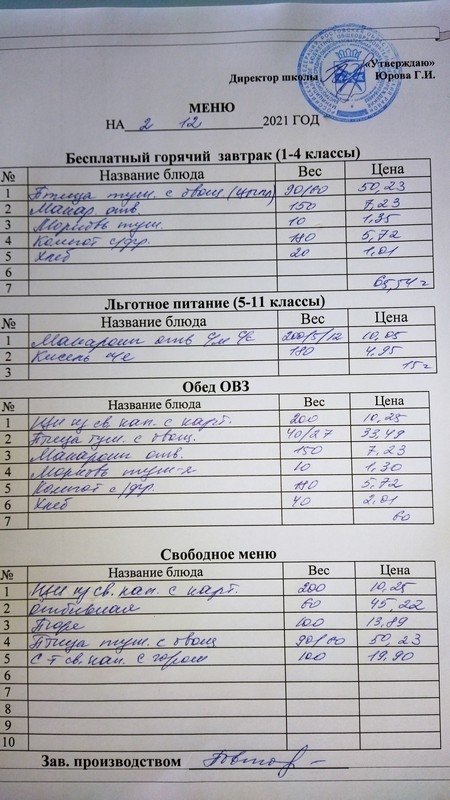 «Утверждаю»
Директор школы Юрова Г.И.
МЕНЮ
НА 2 12 2021 ГОД
Бесплатный горячий завтрак (1-4 классы)
№ Название блюда Вес Цена
1 Птица туш. с овощ (цыпл) 90/60 50,23
2 Макар отв. 150 7,23
3 Морковь туш. 10 1,35
4 Компот с/фр. 180 5,72
5 Хлеб 20 1,01
6
7 65,54
Льготное питание (5-11 классы)
№ Название блюда Вес Цена
1 Макароны отв с/м с/с 200/5/12 10,05
2 Кисель 180 4,95
3 15
Обед ОВЗ
№ Название блюда Вес Цена
1 Щи из св. кап. с карт. 200 10,25
2 Птица туш. с овощ. 40/27 33,49
3 Макароны отв. 150 7,23
4 Морковь туш-я 10 1,30
5 Компот с/фр. 180 5,72
6 Хлеб 40 2,01
7 60
Свободное меню
№ Название блюда Вес Цена
1 Щи из св. кап. с карт. 200 10,25
2 Отбивная 60 45,22
3 Пюре 100 13,89
4 Птица туш. с овощ 90/60 50,23
5 С-т св. кап. с горош 100 19,90
6
7
8
9
10
Зав. производством